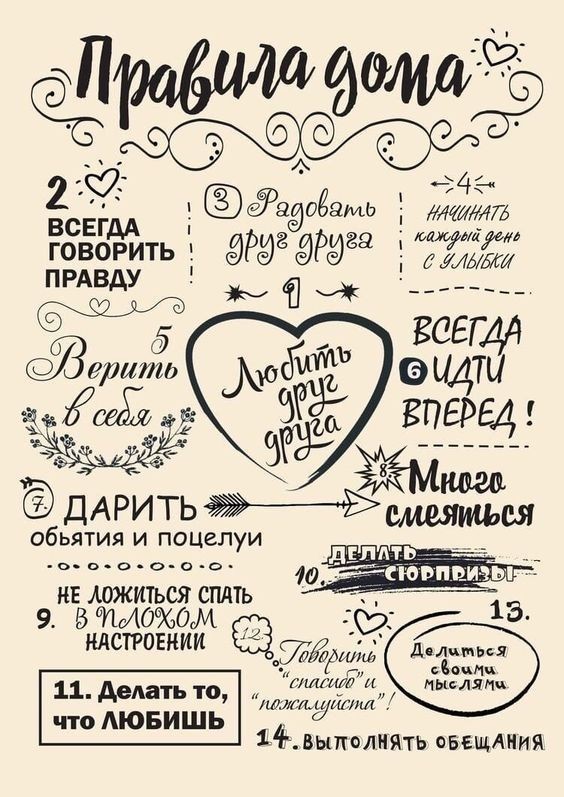 Правила дома
2
ВСЕГДА
ГОВОРИТЬ
ПРАВДУ
3 Радовать
друг друга
4
НАЧИНАТЬ
каждый день
С УЛЫБКИ
1
Любить
друг
друга
5
Верить
в себя
ВСЕГДА
6 ИДТИ
ВПЕРЕД!
7. ДАРИТЬ
обьятия и поцелуи
8. Много
смеяться
9. НЕ ЛОЖИТЬСЯ СПАТЬ
В ПЛОХОМ
НАСТРОЕНИИ
10. ДЕЛАТЬ
СЮРПРИЗЫ
11. Делать то,
что ЛЮБИШЬ
12. Говорить
"спасиб" и
"пожалуйста"!
13.
Делиться
своими
мыслями
14. ВЫПОЛНЯТЬ ОБЕЩАНИЯ